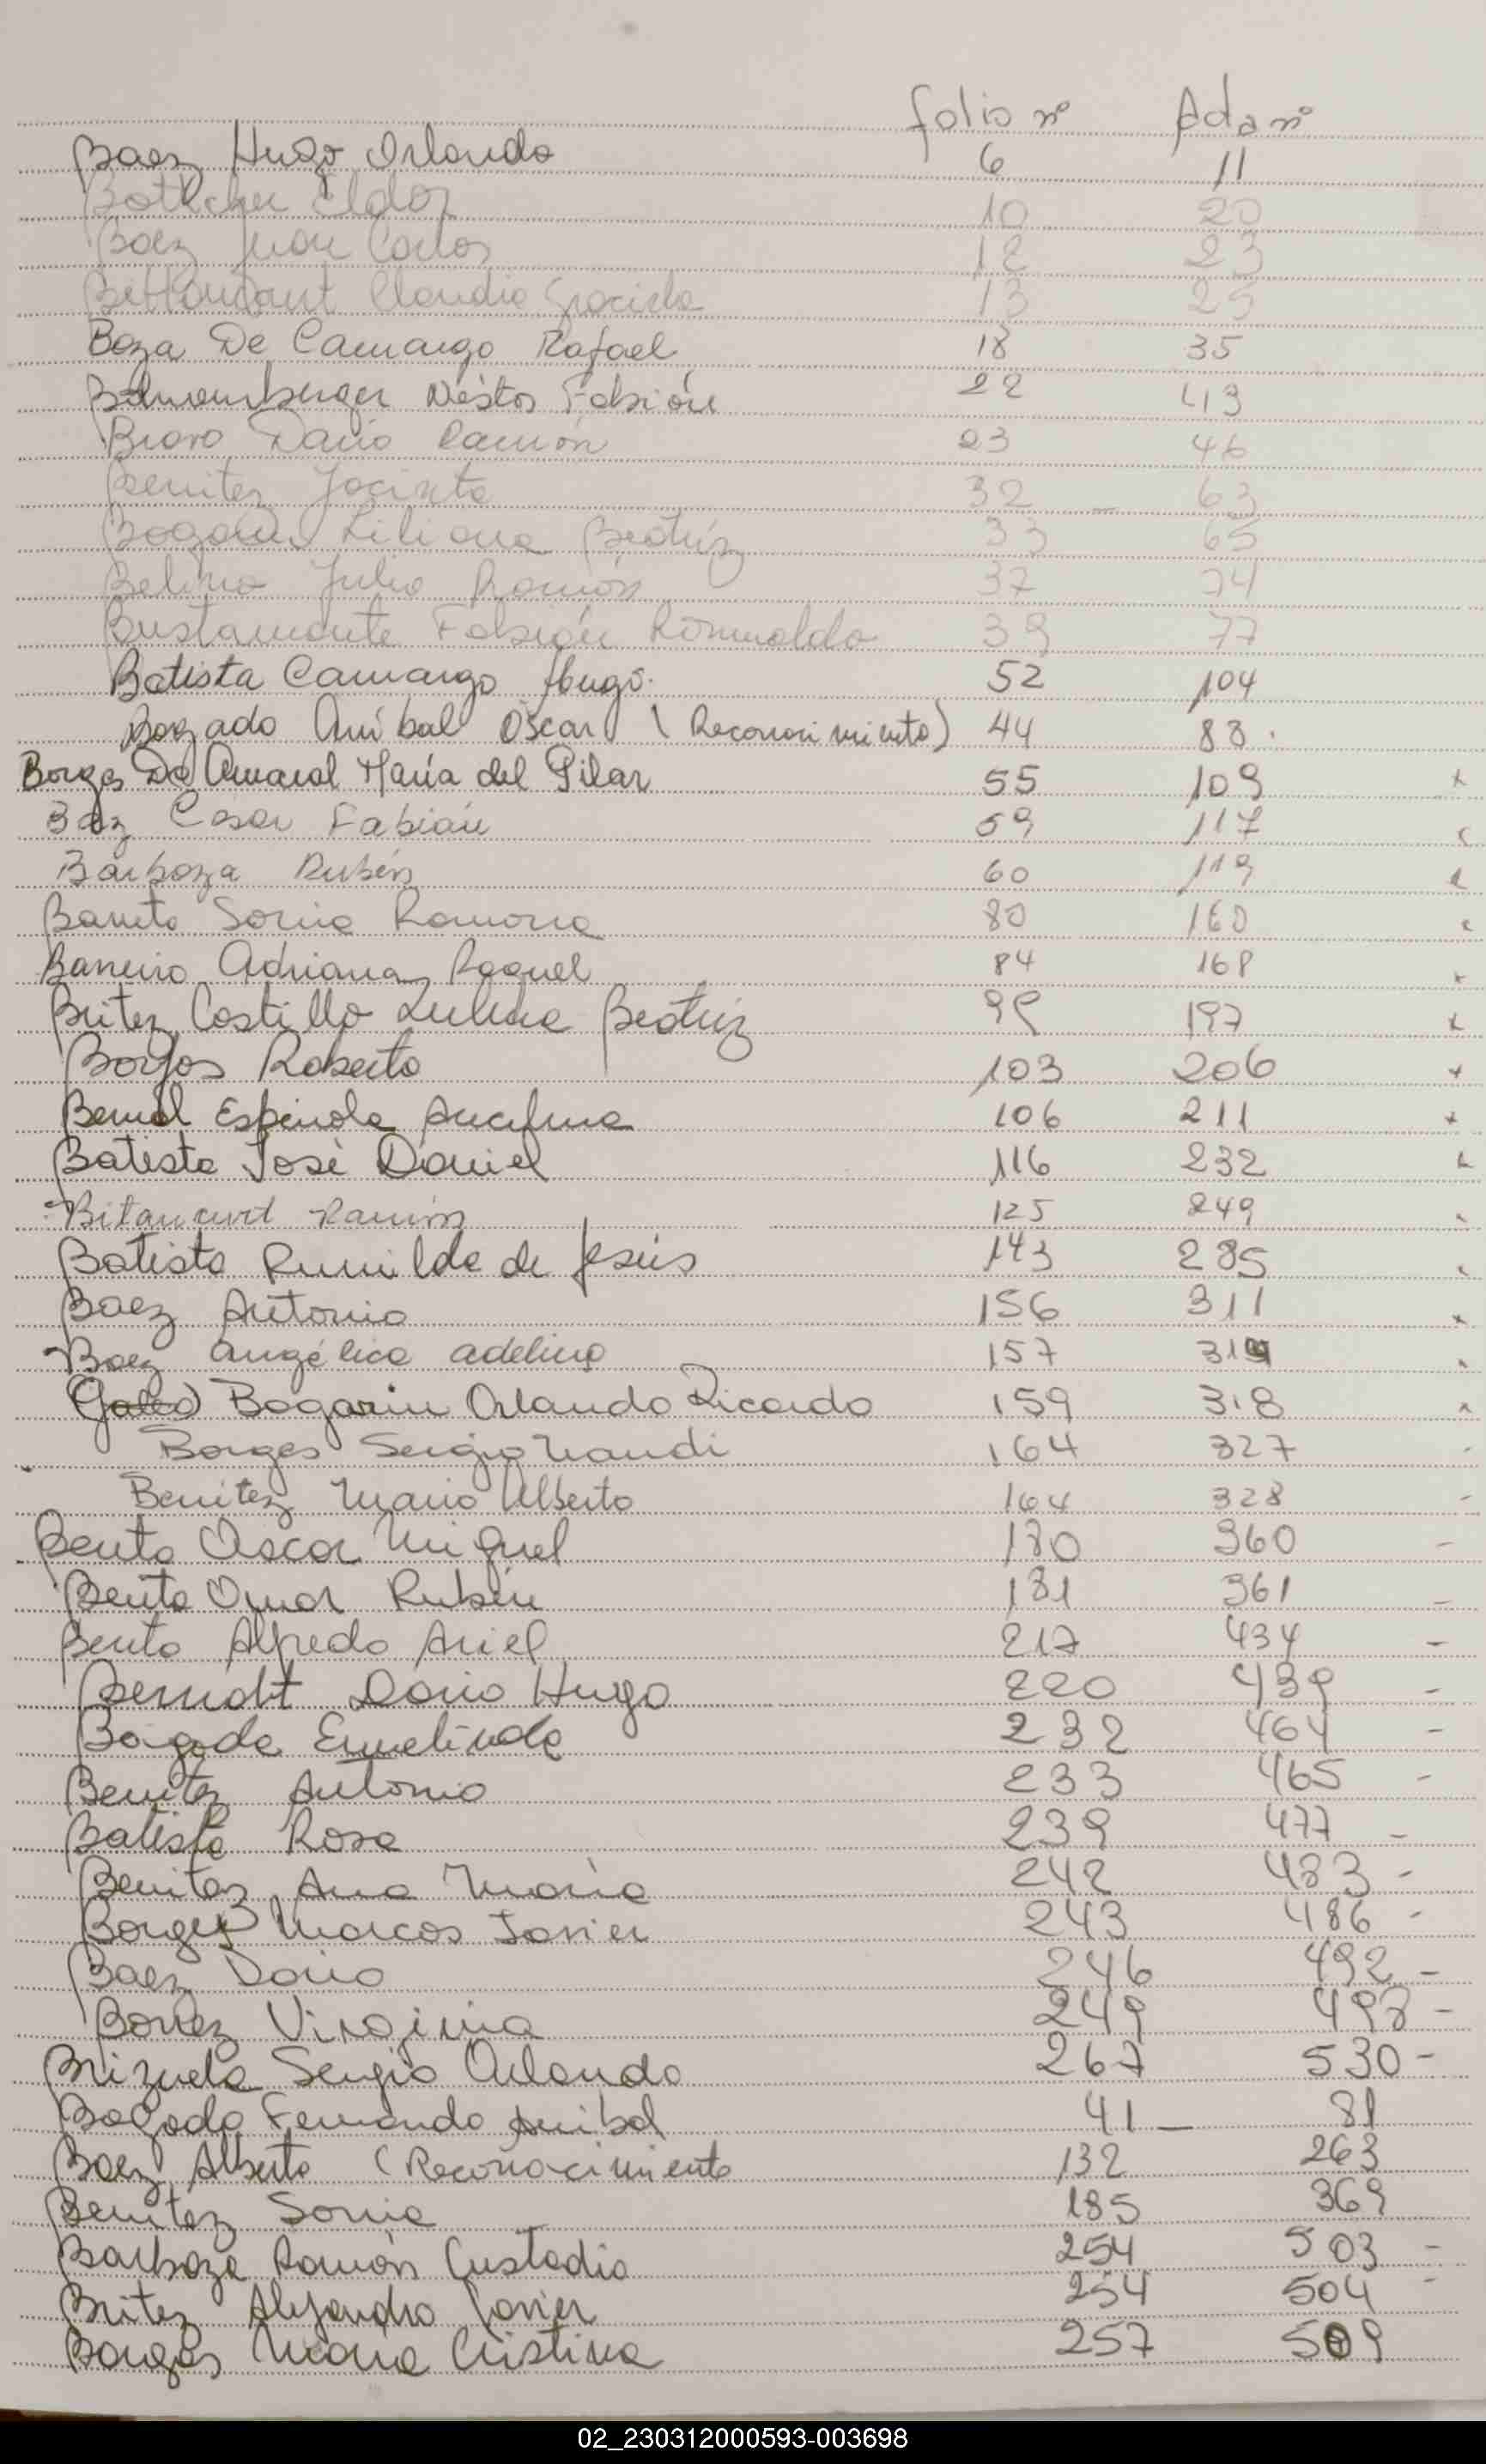 folio nº Acta nº
Baez Hugo Orlando 6 11
Bottcher Eldor 10 20
Baez Juan Carlos 12 23
Claudia Graciela 13 25
Boza De Camargo Rafael 18 35
Néstor Fabián 22 43
Bravo Dario Ramón 23 46
Benitez Jacinta 32 63
Bogado Liliana Beatriz 33 65
Belino Julio Ramón 37 74
Bustamante Fabián Romualdo 39 77
Batista Camargo Hugo. 52 104
Bogado Aníbal Oscar (Reconocimiento) 44 88
Borges De Amaral María del Pilar 55 109 x
Baez Cesar Fabián 59 117
Barboza Rubén 60 119
Barreto Sonia Ramona 80 160
Barreiro Adriana Raquel 84 168
Britez Castillo Beatriz 99 197 x
Borjas Roberto 103 206 x
Bernal Espinola 106 211 x
Batista José Daniel 116 232
Bitancurt Ramón 125 249
Batista Rumilda de Jesús 143 285
Baez Antonio 156 311 x
Baez Angélica adelina 157 314
Bogarin Orlando Ricardo 159 318
Borges Sergio Nandi 164 327
Benitez Mario Alberto 164 328 -
Bento Oscar Miguel 180 360 -
Bento Omar Rubén 181 361 -
Bento Alfredo Ariel 217 434 -
Berndt Dario Hugo 220 439 -
Bogado Ermelinda 232 464 -
Benitez Antonio 233 465 -
Batista Rosa 239 477 -
Benitez Ana Maria 242 483 -
Borges Marcos Javier 243 486 -
Baez Dario 246 492 -
Virginia 249 498 -
Brizuela Sergio Orlando 267 530 -
Bogado Fernando Anibal 41 — 81
Baez Alberto (Reconocimiento 132 263
Benitez Sonia 185 369
Barboza Ramón Custodio 254 503 -
Britez Alejandro Javier 254 504 -
Borges Maria Cristina 257 509
02_230312000593-003698